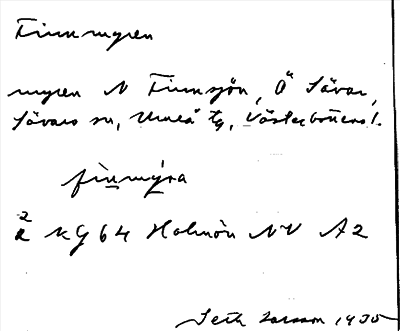 Finnmyren
myren N Finnsjön, Ö Sävar,
Sävars sn, Umeå tg, Västerbottens l.
finmýra
2 KG 64 Holmön NV A2
Seth Larsson 1935